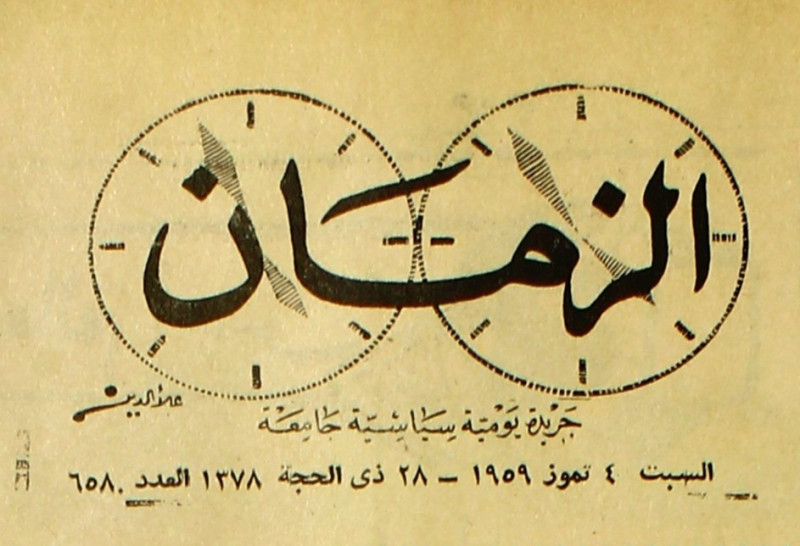 الزمان
علاء الدين
جريدة يومية سياسية جامعة
السبت ٤ تموز ١٩٥٩ – ٢٨ ذى الحجة ١٣٧٨ العدد ٦٥٨٠